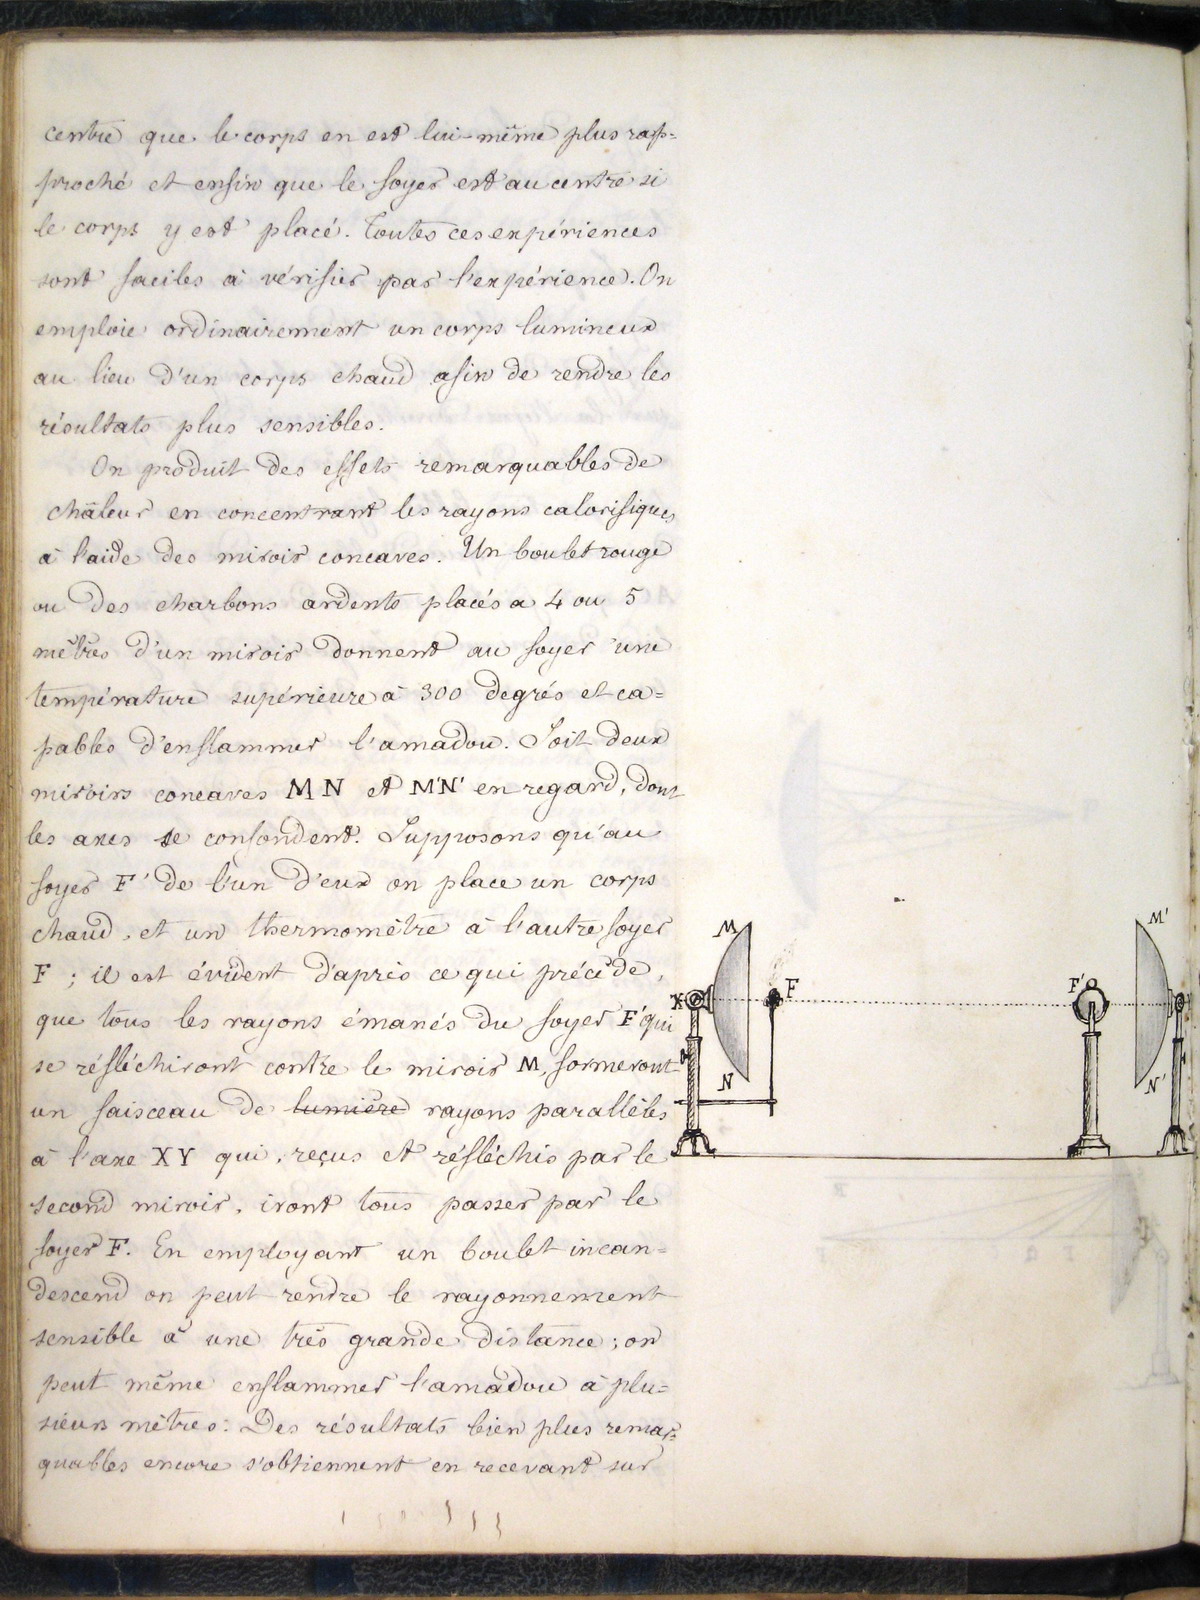 centre que le corps en est lui-même plus rap=
proché et enfin que le foyer est au centre si
le corps y est placé. Toutes ces expériences
sont faciles à vérifier par l'expérience. On
emploie ordinairement un corps lumineux
au lieu d'un corps chaud afin de rendre les
résultats plus sensibles.
On produit des effets remarquables de
châleur en concentrant les rayons calorifiques
à l'aide des miroir concaves. Un boulet rouge
ou des charbons ardents placés a 4 ou 5
mètres d'un miroir donnent au foyer une
température supérieure à 300 degrés et ca=
pables d'enflammer l'amadou. Soit deux
miroirs concaves MN et M'N' en regard, dont
les axes se confondent. Supposons qu'au
foyer F' de l'un d'eux on place un corps
chaud, et un thermomètre à l'autre foyer
F ; il est évident d'après ce qui précède,
que tous les rayons émanés du foyer F' qui
se réfléchiront contre le miroir M, formeront
un faisceau de lumière rayons parallèles
à l'axe XY qui, reçus et réfléchis par le
second miroir, iront tous passer par le
foyer F. En employant un boulet incan=
descend on peut rendre le rayonnement
sensible à une très grande distance ; on
peut même enflammer l'amadou à plu=
sieurs mètres. Des résultats bien plus remar=
quables encore s'obtiennent en recevant sur
M
M'
X
F
F'
N
N'